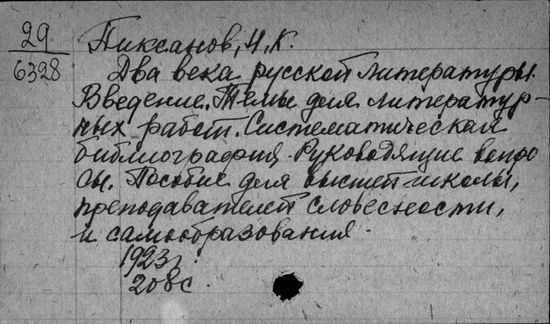 29
6328
Пиксанов, Н. К.
Два века русской литературы.
Введение. Темы для литератур-
ных работ. Систематическая
библиография. Руководящие вопро
сы. Пособие для высшей школы,
преподавателей словесности,
и самообразования.
1923 г.
208 с.